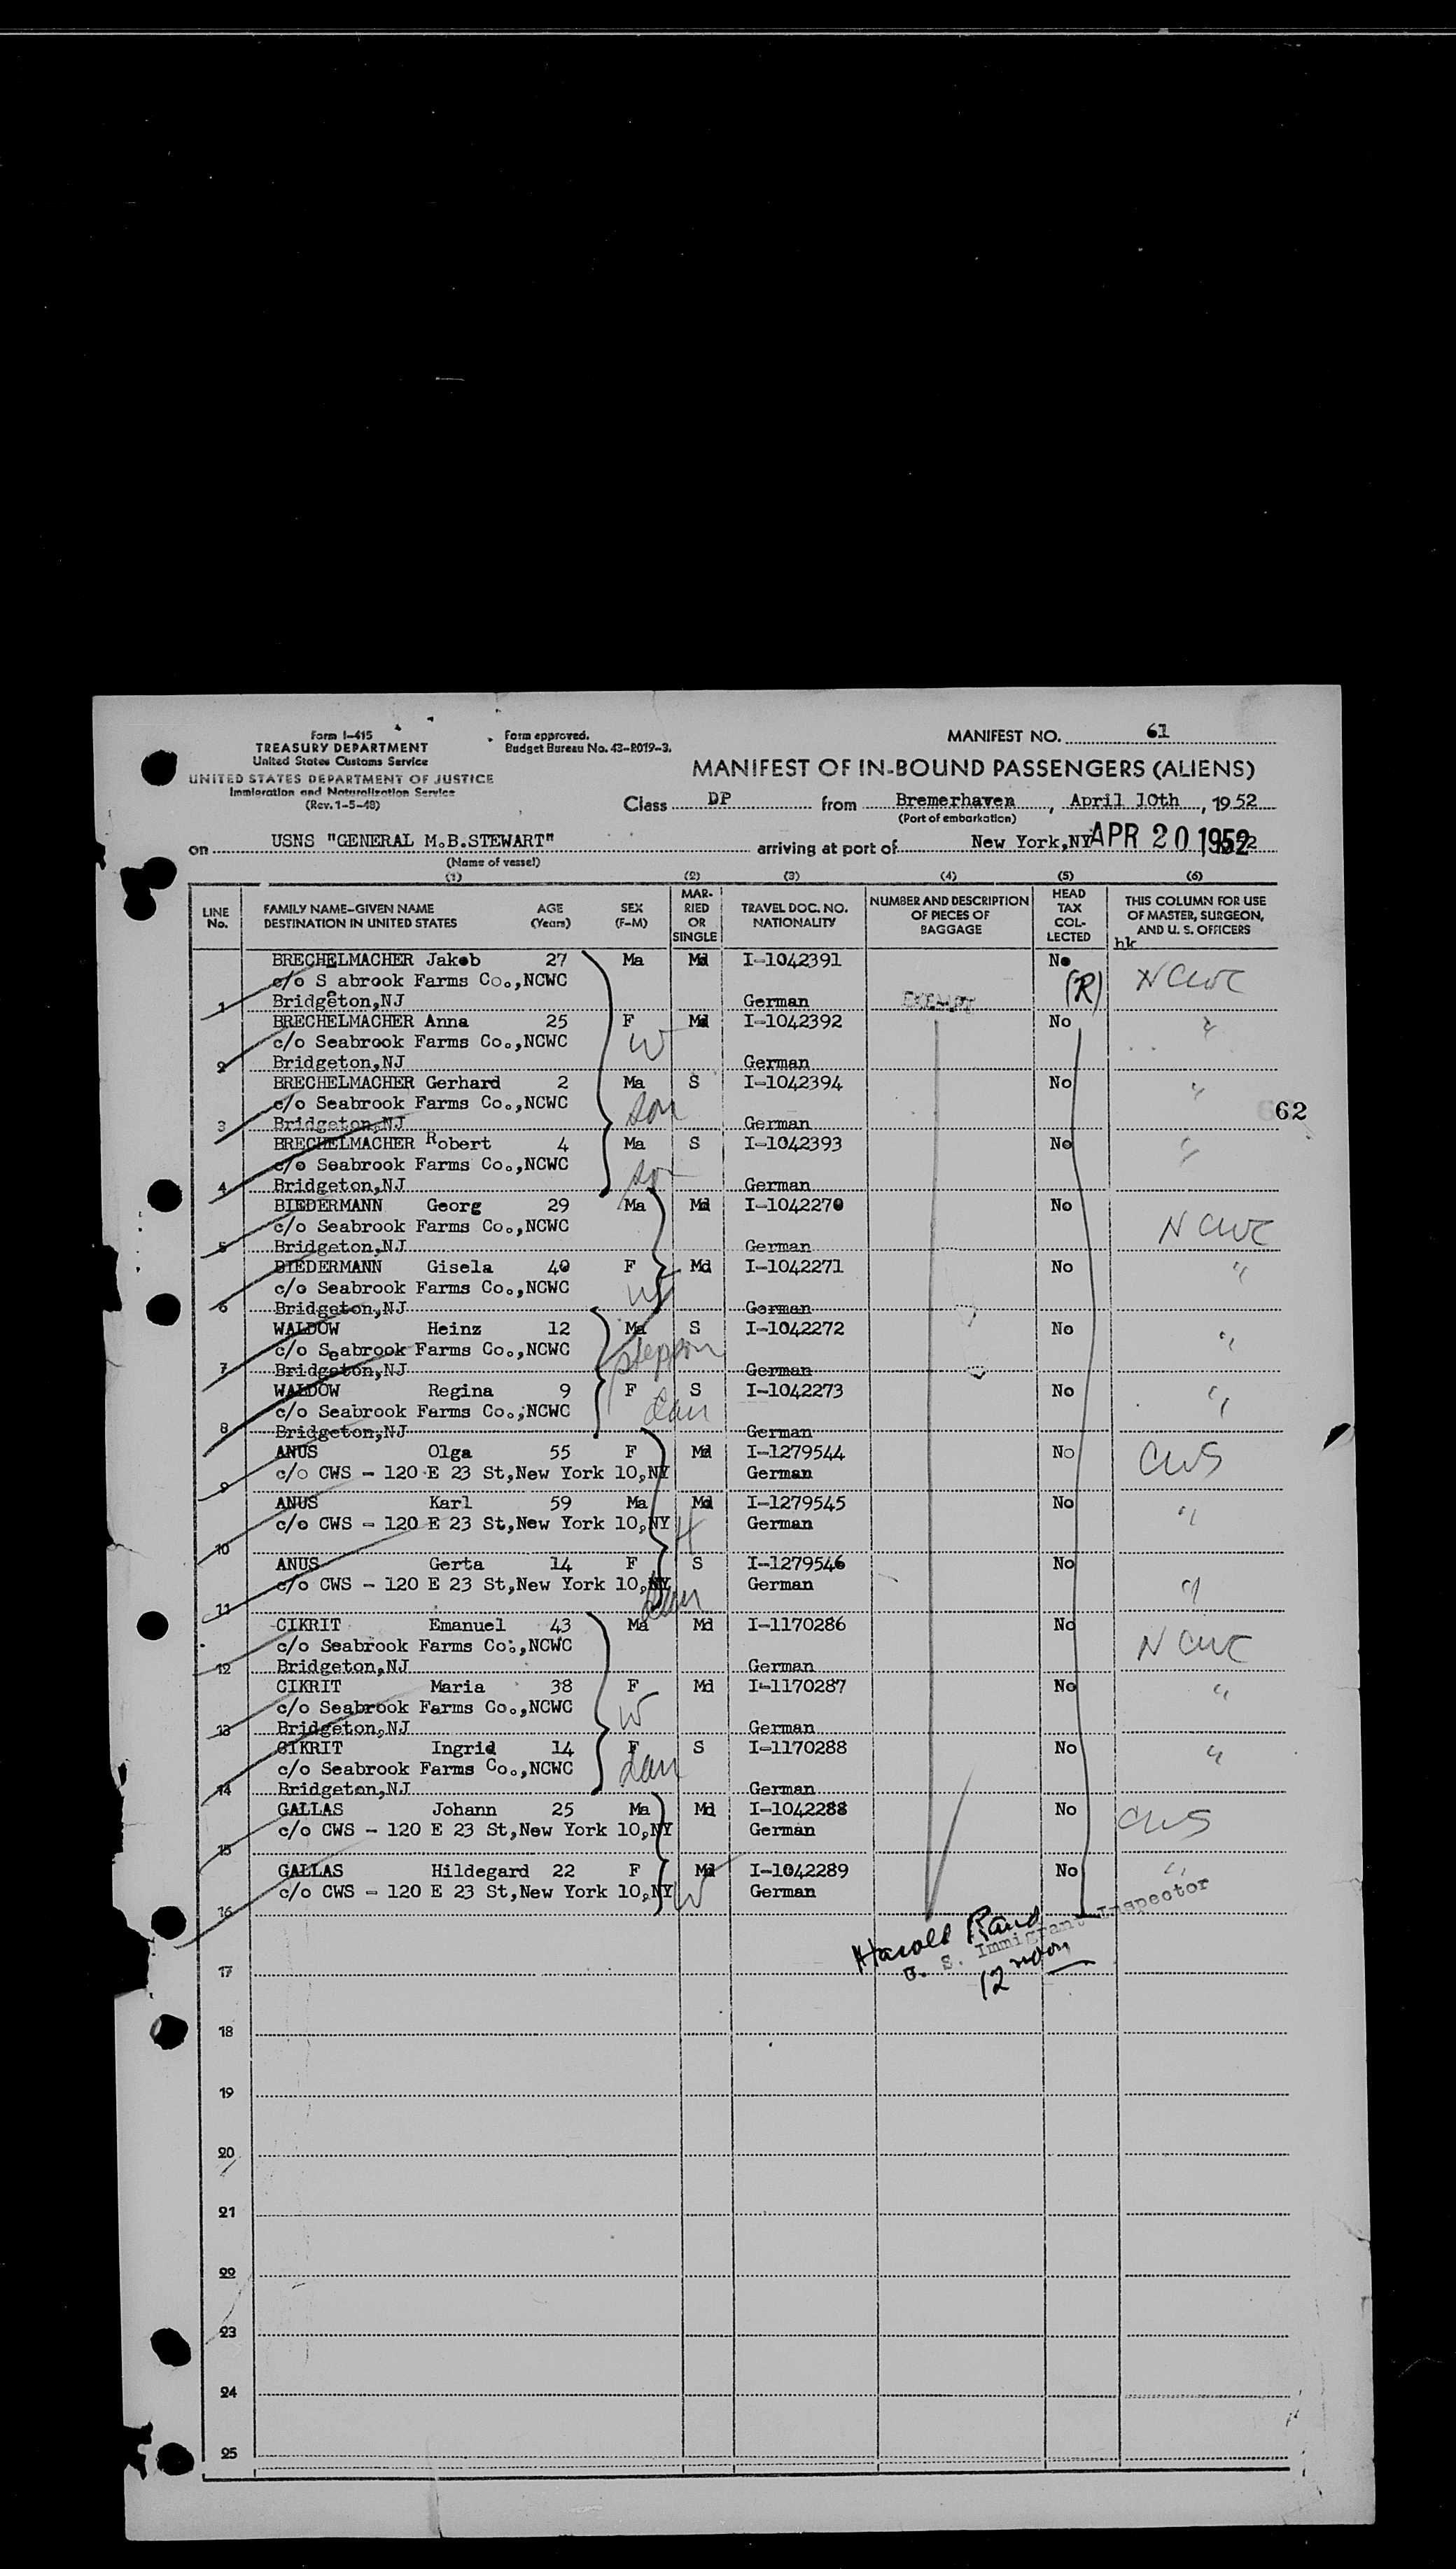 Form I-415
TREASURY DEPARTMENT
United States Customs Service
UNITED STATES DEPARTMENT OF JUSTICE
Immigration and Naturalization Service
(Rev. 1-5-48)
Form approved.
Budget Bureau No. 43-R019-3.
MANIFEST NO. 61
MANIFEST OF IN-BOUND PASSENGERS (ALIENS)
Class DP from Bremerhaven, April 10th, 1952
(Port of embarkation)
on USNS "GENERAL M.B.STEWART" arriving at port of New York,NY APR 20 1952
(Name of vessel)
(1) (2) (3) (4) (5) (6)
LINE No. FAMILY NAME-GIVEN NAME DESTINATION IN UNITED STATES AGE (Years) SEX (F-M) MARRIED OR SINGLE TRAVEL DOC. NO. NATIONALITY NUMBER AND DESCRIPTION OF PIECES OF BAGGAGE HEAD TAX COLLECTED THIS COLUMN FOR USE OF MASTER, SURGEON, AND U. S. OFFICERS
hk
BRECHELMACHER Jakob 27 Ma Md I-1042391 No
c/o S abrook Farms Co.,NCWC (R) NCWC
1 Bridgeton,NJ German EXEMPT
BRECHELMACHER Anna 25 F Md I-1042392 No "
c/o Seabrook Farms Co.,NCWC W
2 Bridgeton,NJ German
BRECHELMACHER Gerhard 2 Ma S I-1042394 No "
c/o Seabrook Farms Co.,NCWC son
3 Bridgeton,NJ German
62
BRECHELMACHER Robert 4 Ma S I-1042393 No "
c/o Seabrook Farms Co.,NCWC son
4 Bridgeton,NJ German
BIEDERMANN Georg 29 Ma Md I-1042270 No
c/o Seabrook Farms Co.,NCWC NCWC
5 Bridgeton,NJ German
BIEDERMANN Gisela 40 F Md I-1042271 No "
c/o Seabrook Farms Co.,NCWC W
6 Bridgeton,NJ German
WALDOW Heinz 12 Ma S I-1042272 No "
c/o Seabrook Farms Co.,NCWC stepson
7 Bridgeton,NJ German
WALDOW Regina 9 F S I-1042273 No "
c/o Seabrook Farms Co.,NCWC dau
8 Bridgeton,NJ German
ANUS Olga 55 F Md I-1279544 No CWS
9 c/o CWS - 120 E 23 St,New York 10,NY German
ANUS Karl 59 Ma Md I-1279545 No "
c/o CWS - 120 E 23 St,New York 10,NY H German
10
ANUS Gerta 14 F S I-1279546 No
c/o CWS - 120 E 23 St,New York 10,NY dau German "
11
CIKRIT Emanuel 43 Ma Md I-1170286 No
c/o Seabrook Farms Co.,NCWC NCWC
12 Bridgeton,NJ German
CIKRIT Maria 38 F Md I-1170287 No "
c/o Seabrook Farms Co.,NCWC W
13 Bridgeton,NJ German
CIKRIT Ingrid 14 F S I-1170288 No "
c/o Seabrook Farms Co.,NCWC dau
14 Bridgeton,NJ German
GALLAS Johann 25 Ma Md I-1042288 No CWS
c/o CWS - 120 E 23 St,New York 10,NY German
15
GALLAS Hildegard 22 F Md I-1042289 No "
c/o CWS - 120 E 23 St,New York 10,NY W German
16
Harold Rand
U. S. Immigrant Inspector
12 noon
17
18
19
20
21
22
23
24
25